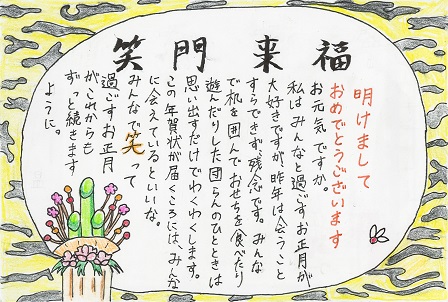 笑門来福
明けまして
おめでとうございます
お元気ですか。
私はみんなと過ごすお正月が
大好きですが、昨年は会うこと
すらできず残念です。みんな
で机を囲んでおせちを食べたり
遊んだりした団らんのひとときは
思い出すだけでわくわくします。
この年賀状が届くころには、みんな
に会えているといいな。
みんなで笑って
過ごすお正月
がこれからも
ずっと続きます
ように。